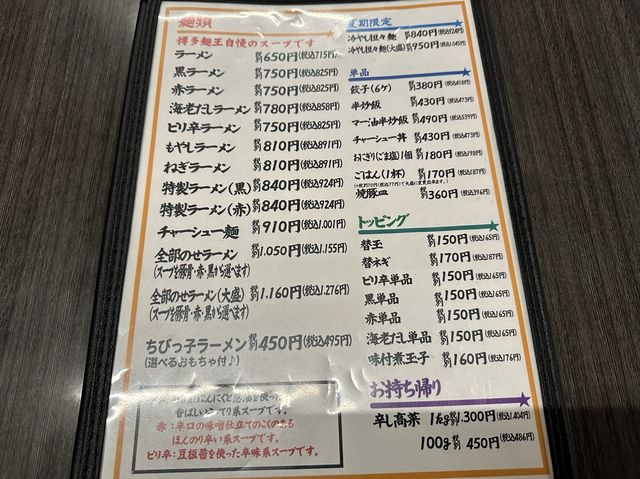 麺類
博多麺王自慢のスープです
ラーメン 税別650円(税込715円)
黒ラーメン 税別750円(税込825円)
赤ラーメン 税別750円(税込825円)
海老だしラーメン 税別780円(税込858円)
ピリ辛ラーメン 税別750円(税込825円)
もやしラーメン 税別810円(税込891円)
ねぎラーメン 税別810円(税込891円)
特製ラーメン(黒) 税別840円(税込924円)
特製ラーメン(赤) 税別840円(税込924円)
チャーシュー麺 税別910円(税込1.001円)
全部のせラーメン 税別1.050円(税込1.155円)
(スープを豚骨・赤・黒から選べます)
全部のせラーメン(大盛) 税別1.160円(税込1.276円)
(スープを豚骨・赤・黒から選べます)
ちびっ子ラーメン 税別450円(税込495円)
(選べるおもちゃ付♪)
にんにくと
香ばしい
系スープです。
赤:辛口の味噌仕立てのこくのある
ほんのり辛い系スープです。
ピリ辛:豆板醤を使った辛味系スープです。
夏期限定
冷やし担々麺 税別840円(税込924円)
冷やし担々麺(大盛) 税別950円(税込1045円)
単品
餃子(6ケ) 税別380円(税込418円)
半炒飯 税別430円(税込473円)
マー油半炒飯 税別490円(税込539円)
チャーシュー丼 税別430円(税込473円)
おにぎり(ごま塩)1個 税別180円(税込198円)
ごはん(1杯) 税別170円(税込187円)
(+税別70円(税込77円)で大盛に変更出来ます。)
焼豚皿 税別360円(税込396円)
トッピング
替玉 税別150円(税込165円)
替ネギ 税別170円(税込187円)
ピリ辛単品 税別150円(税込165円)
黒単品 税別150円(税込165円)
赤単品 税別150円(税込165円)
海老だし単品 税別150円(税込165円)
味付煮玉子 税別160円(税込176円)
お持ち帰り
辛し高菜 1kg税別1.300円(税込1.404円)
100g 税別450円(税込486円)